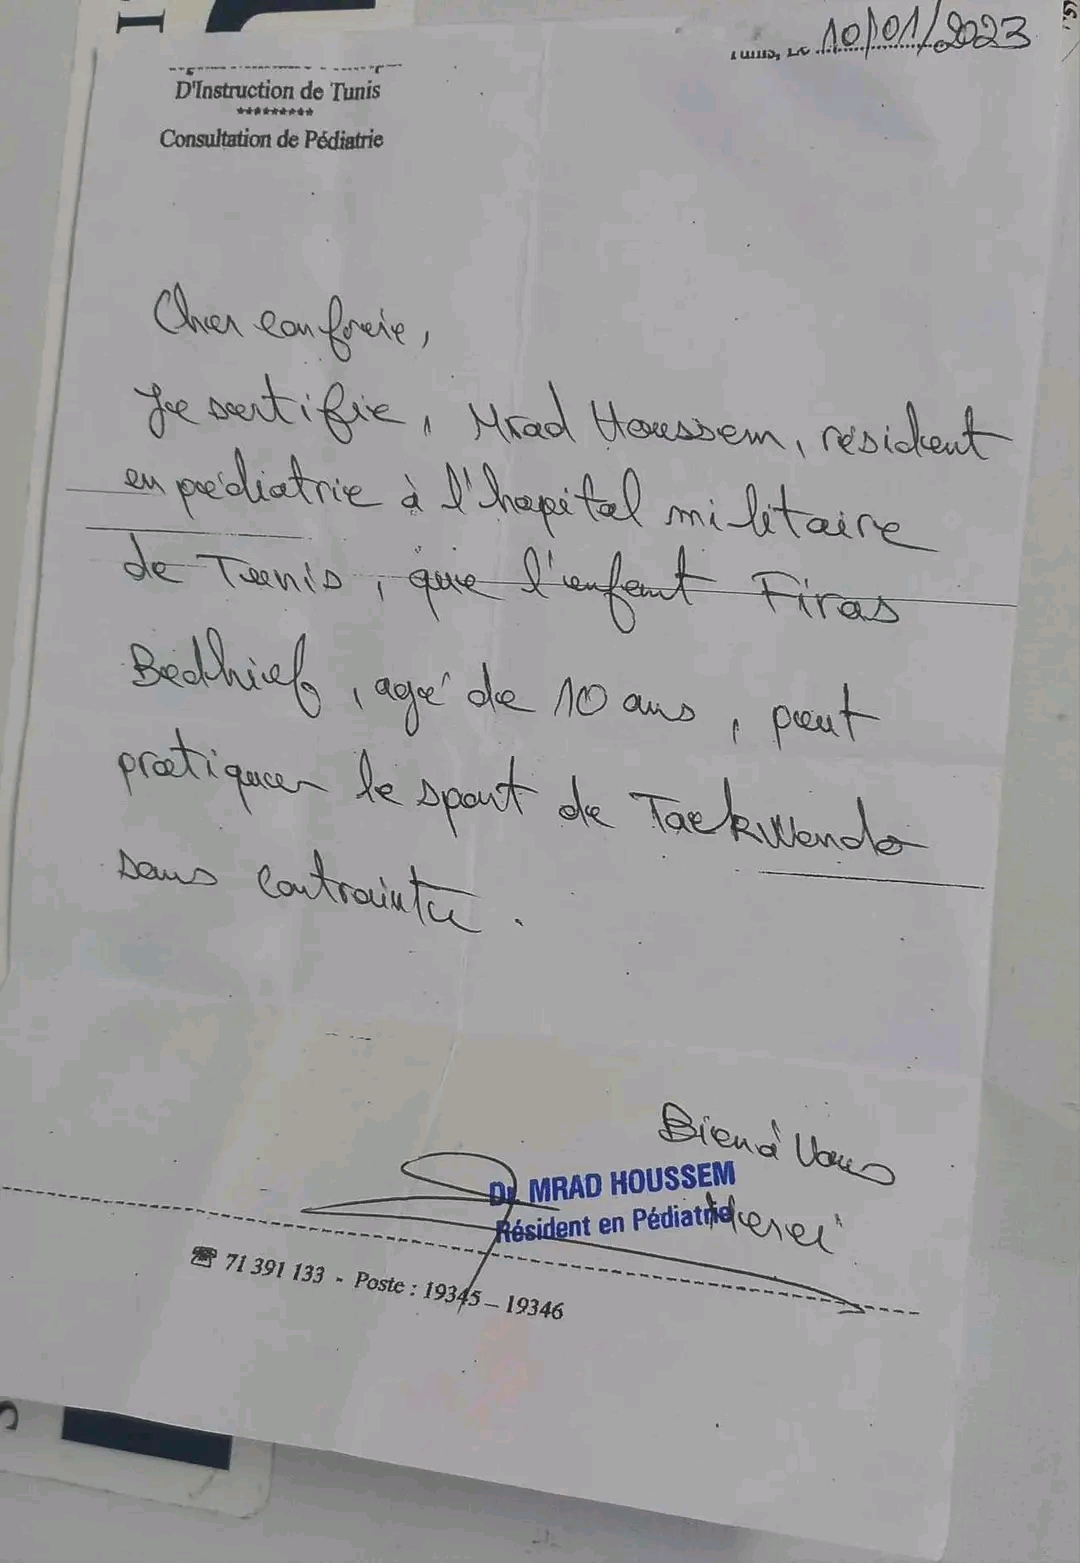 10/01/2023
D'Instruction de Tunis
*********
Consultation de Pédiatrie
Cher confrère,
Je sertifie, Mrad Houssem, résident
en pédiatrie à l'hopital militaire
de Tunis, que l'enfant Firas
Bedhief, agé de 10 ans, peut
pratiquer le sport de Taekwendo
sans contrainte.
Bien à Vous
Dr. MRAD HOUSSEM
Résident en Pédiatrie
Merci
☎ 71 391 133 - Poste : 19345 – 19346